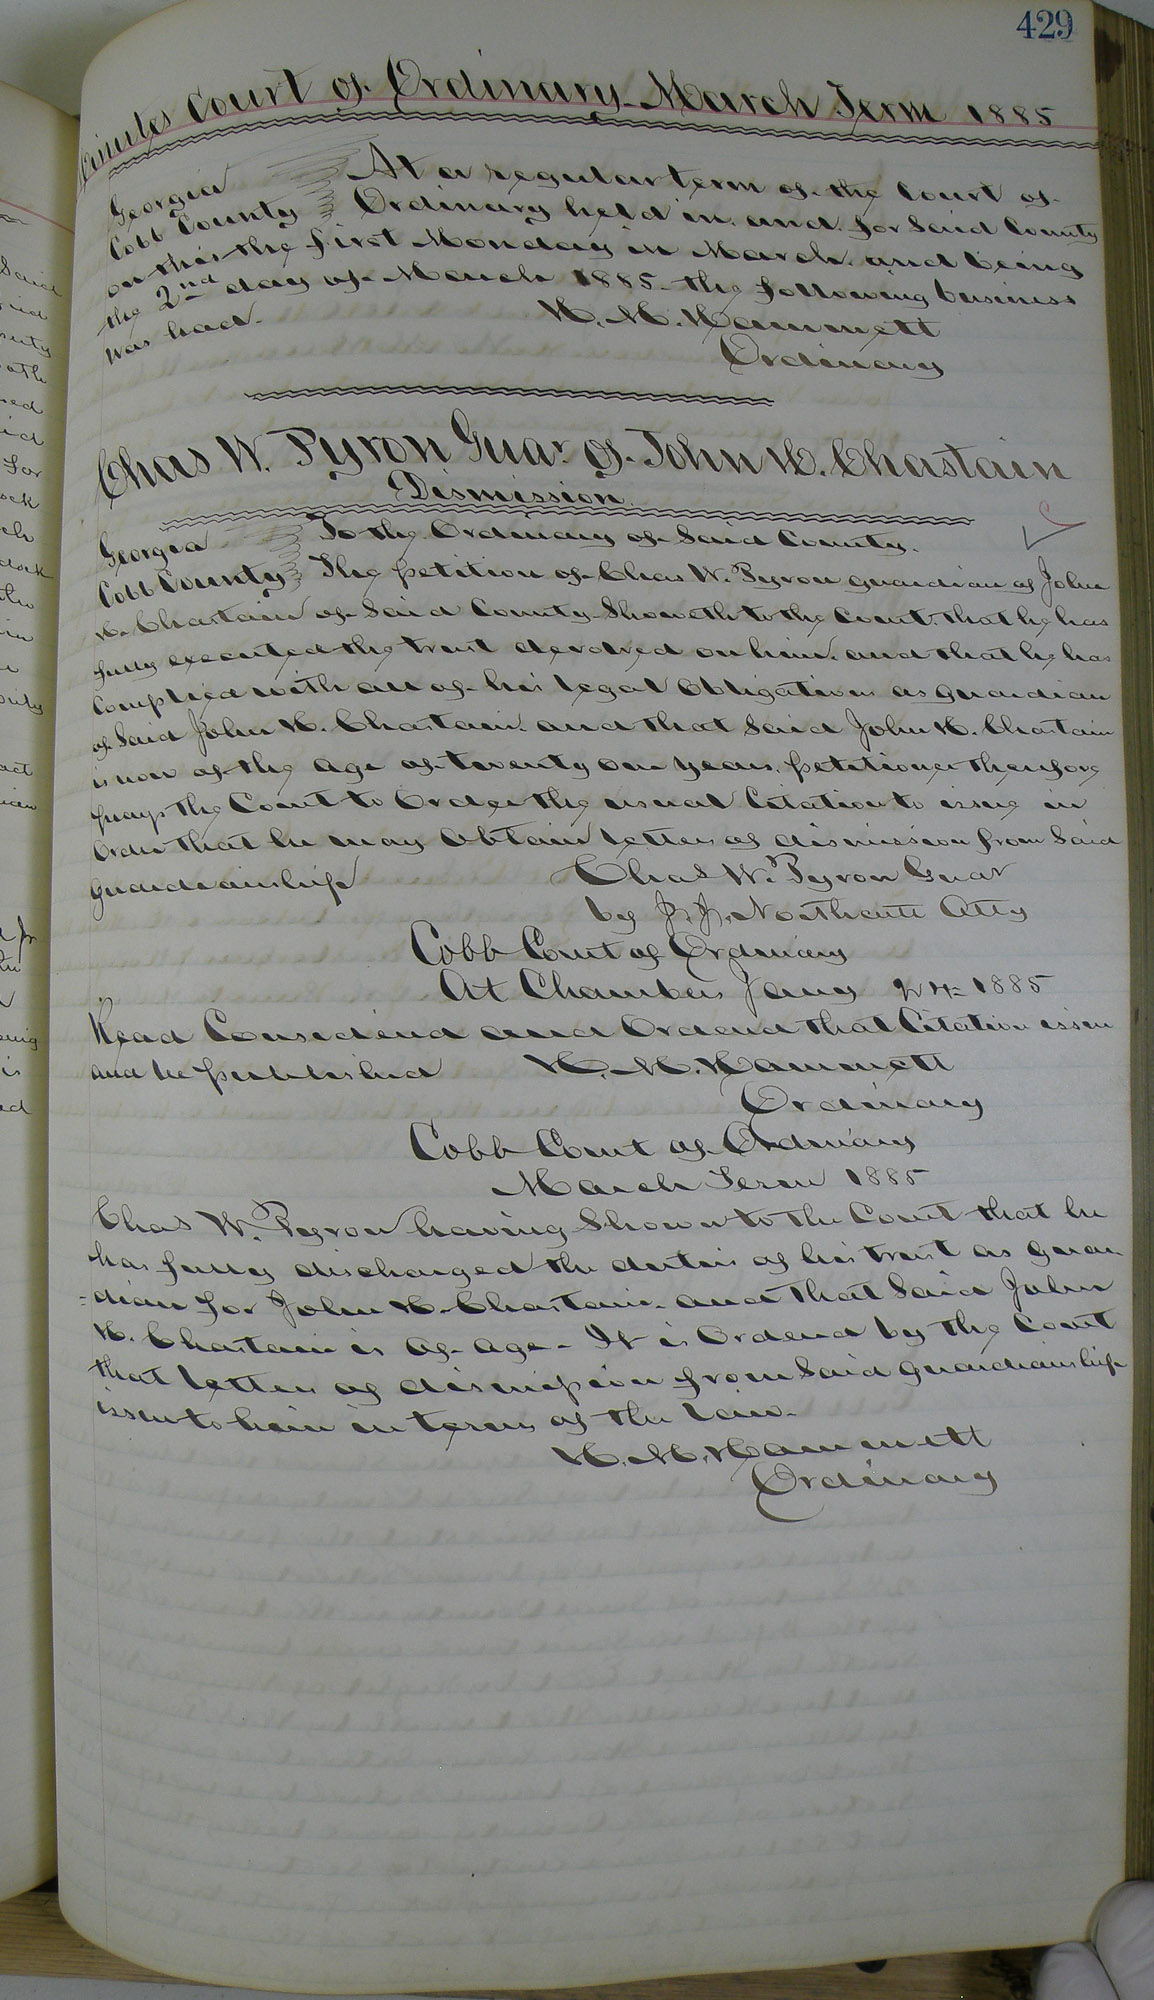 429
Minutes Court of Ordinary March Term 1885
Georgia At a regular term of the Court of
Cobb County Ordinary held in and for Said County
on this the first Monday in March and being
the 2nd day of March 1885 the following business
was had. H. M. Hammett
Ordinary
Chas W. Pyron Guar. of John H. Chastain
Dismission
Georgia To the Ordinary of Said County.
Cobb County The petition of Chas W. Pyron guardian of John
H. Chastain of Said County Showeth to the Court that he has
fully executed the trust devolved on him and that he has
Complied with all of his legal Obligations as guardian
of Said John H. Chastain and that Said John H. Chastain
is now of the age of twenty one years. petitioner therefore
prays the Court to Order the usual Citation to issue in
Order that he may Obtain letters of dismission from Said
guardianship Chas W. Pyron Guar
by J. J. Northcutt Atty
Cobb Court of Ordinary
At Chambers Jany 24 1885
Read Considered and Ordered that Citation issue
and be published H. M. Hammett
Ordinary
Cobb Court of Ordinary
March Term 1885
Chas W. Pyron having Shown to the Court that he
has fully discharged the duties of his trust as guar
=dian for John H. Chastain and that Said John
H. Chastain is of age - It is Ordered by the Court
that letters of dismission from Said guardianship
issue to him in terms of the law.
H. M. Hammett
Ordinary